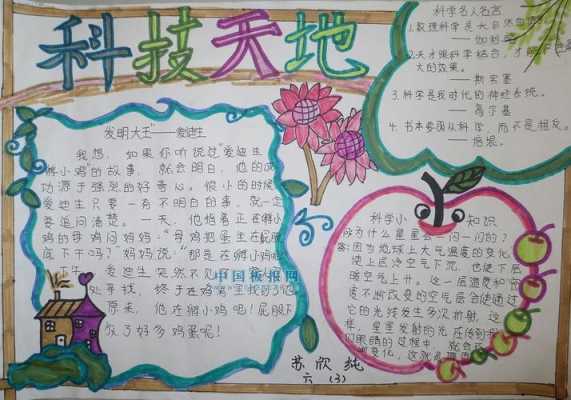 科技天地
科学名人名言
1.数理科学是大自然
——伽利略
2.天才跟科学结合,才能
大的效果。
——斯宾塞
3.科学是我时代的神经系统。
——高尔基
4.书本要跟从科学,而不是相反。
——培根。
发明大王”——爱迪生
我想,如果你听说过“爱迪生
孵小鸡”的故事,就会明白,他的成
功源于强烈的好奇心。很小的时候
爱迪生只要一有不明白的事,就一定
要追问清楚。一天,他指着正在孵小
鸡的母鸡问妈妈:“母鸡把蛋坐在屁股
底下干吗?”妈妈说:“那是在孵小鸡
午,爱迪生突然不见
处寻找,终于在鸡窝里找到了他
原来,他在孵小鸡吧!屁股下
放了好多鸡蛋呢!
中国板报网
科学小知识
为什么星星会一闪一闪的?
答:因为地球上大气温度的变化
使上层冷空气下沉,也使下层
暖空气上升。这一层温度和密
度不断改变的空气层会使通过
它的光线发生多次折射,这
样,星星发射的光在传到
们眼睛的过程中,就会
变化,这就
苏欣纯
六(3)